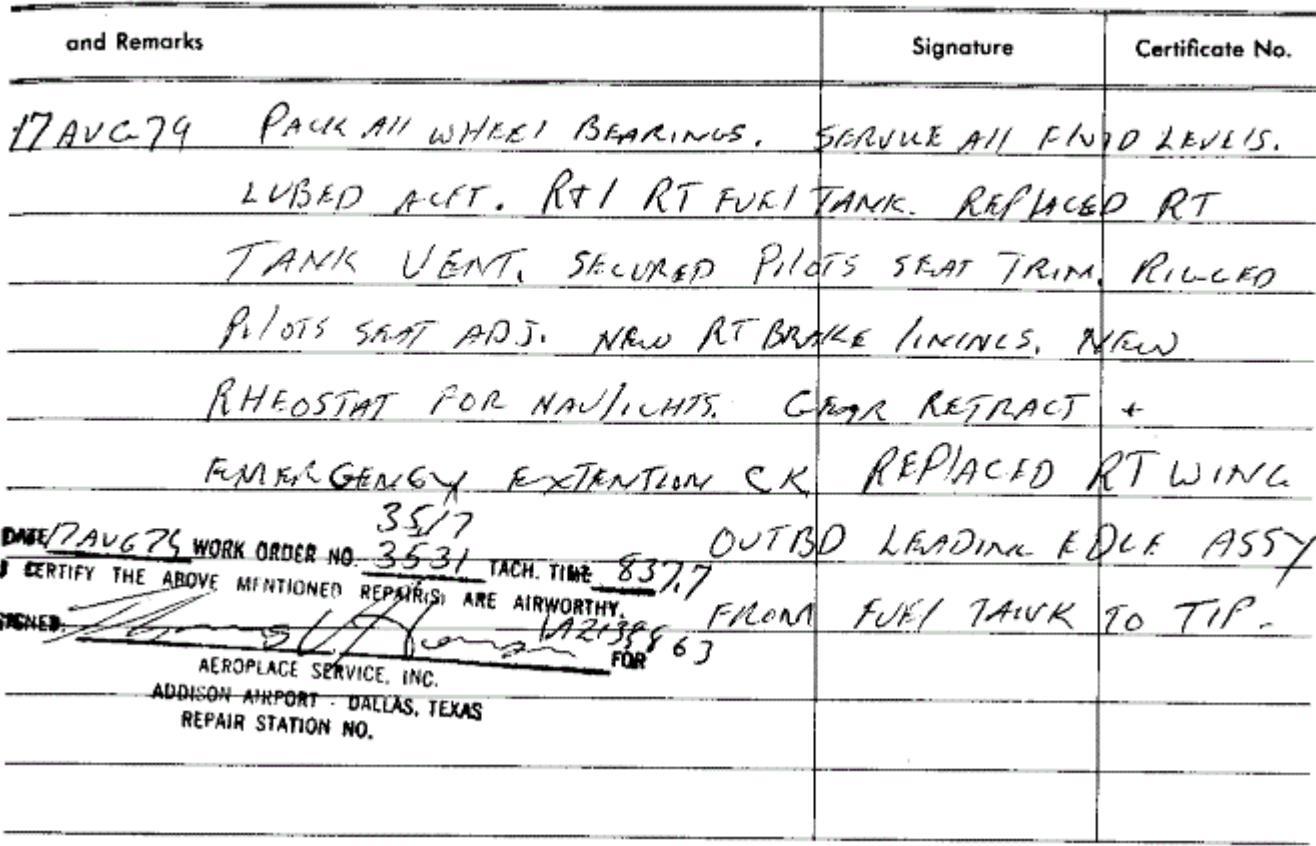 and Remarks Signature Certificate No.
17 AUG 79 PACK All WHEEl BEARINGS. SERVICE All FlUID LEVElS.
LUBED ACFT. R+I RT FUEl TANK. REPlACED RT
TANK VENT. SECURED PIlOTS SEAT TRIM. RIGGED
PIlOTS SEAT ADJ. NEW RT BRAKE lININGS. NEW
RHEOSTAT FOR NAV lIGHTS. GEAR RETRACT +
EMERGENCY EXTENTION CK REPlACED RT WING
OUTBD LEADING EDGE ASSY
FROM FUEl TANK TO TIP.
3517
DATE 17 AUG 79 WORK ORDER NO. 3531 TACH. TIME 837.7
I CERTIFY THE ABOVE MENTIONED REPAIR(S) ARE AIRWORTHY.
SIGNED FOR
AEROPLACE SERVICE, INC.
ADDISON AIRPORT - DALLAS, TEXAS
REPAIR STATION NO.